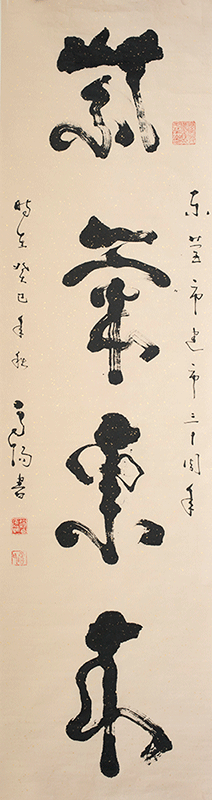 紫氣東來
东营市建市三十周年
時在癸巳年秋
書